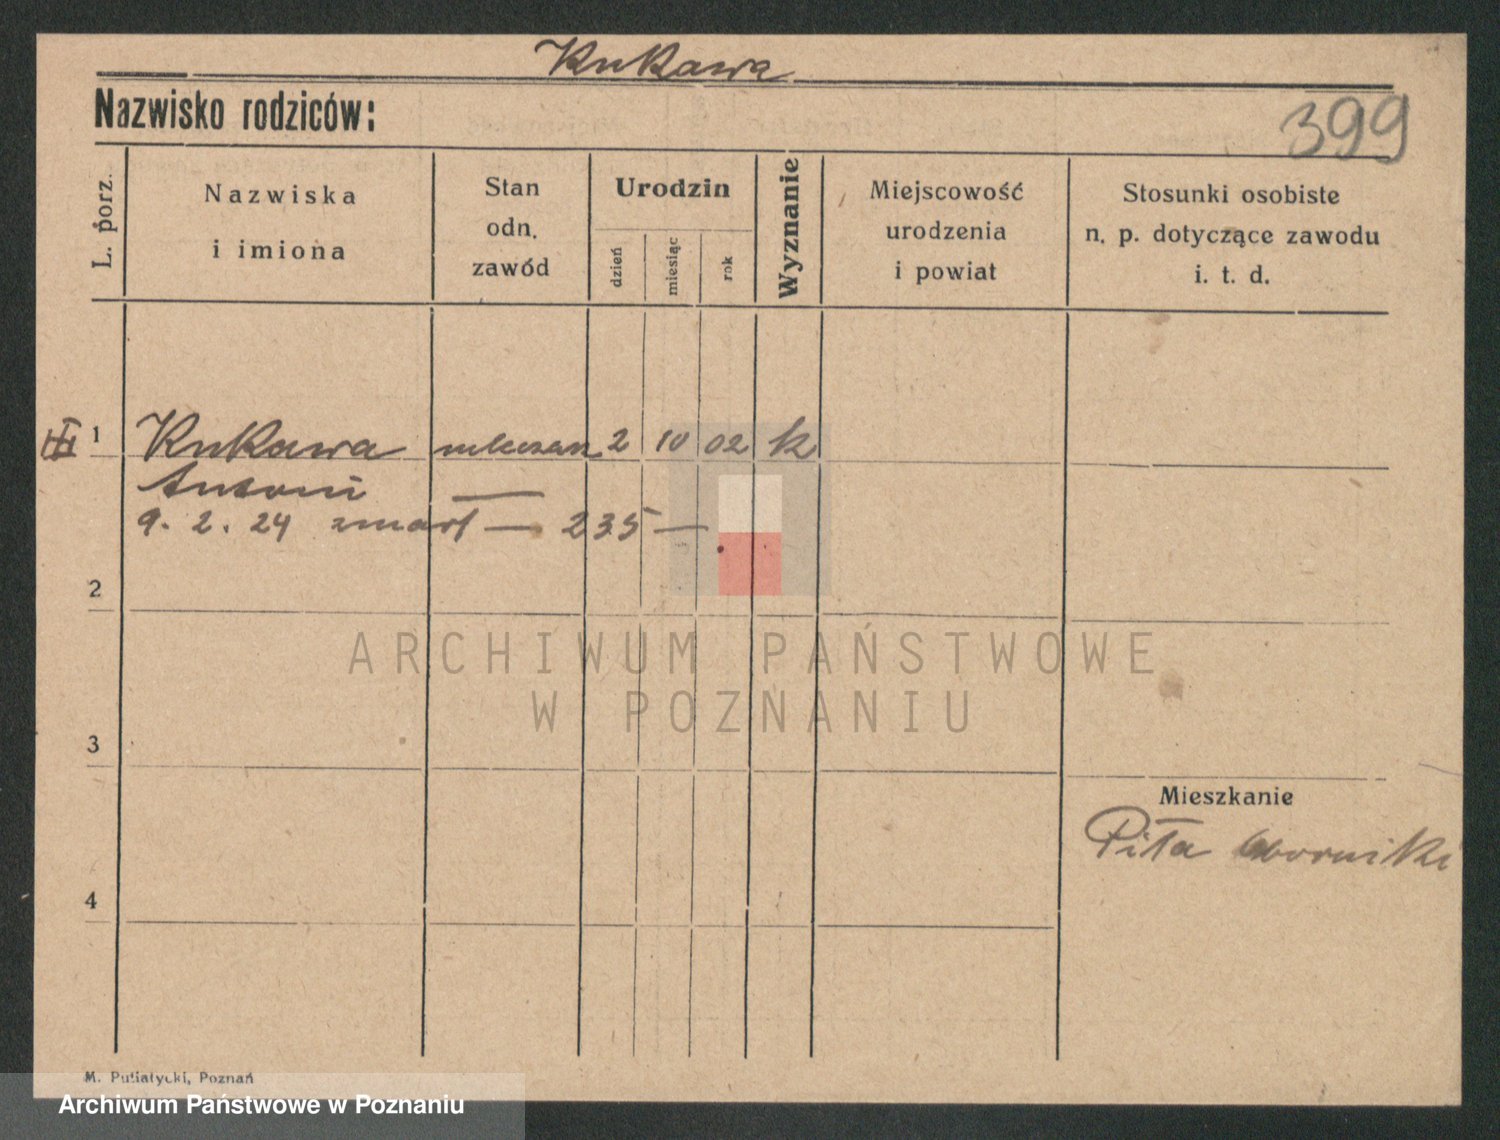 Kukawa
Nazwisko rodziców:
399
L. porz.
Nazwiska
i imiona
Stan
odn.
zawód
Urodzin
dzień
miesiąc
rok
Wyznanie
Miejscowość
urodzenia
i powiat
Stosunki osobiste
n. p. dotyczące zawodu
i. t. d.
III 1 Kukawa mleczarz 2 10 02 k
Antoni —
9. 2. 24 zmarł — 235 —
2
ARCHIWUM PAŃSTWOWE
W POZNANIU
3
Mieszkanie
Piła Oborniki
4
M. Putiatycki, Poznań
Archiwum Państwowe w Poznaniu